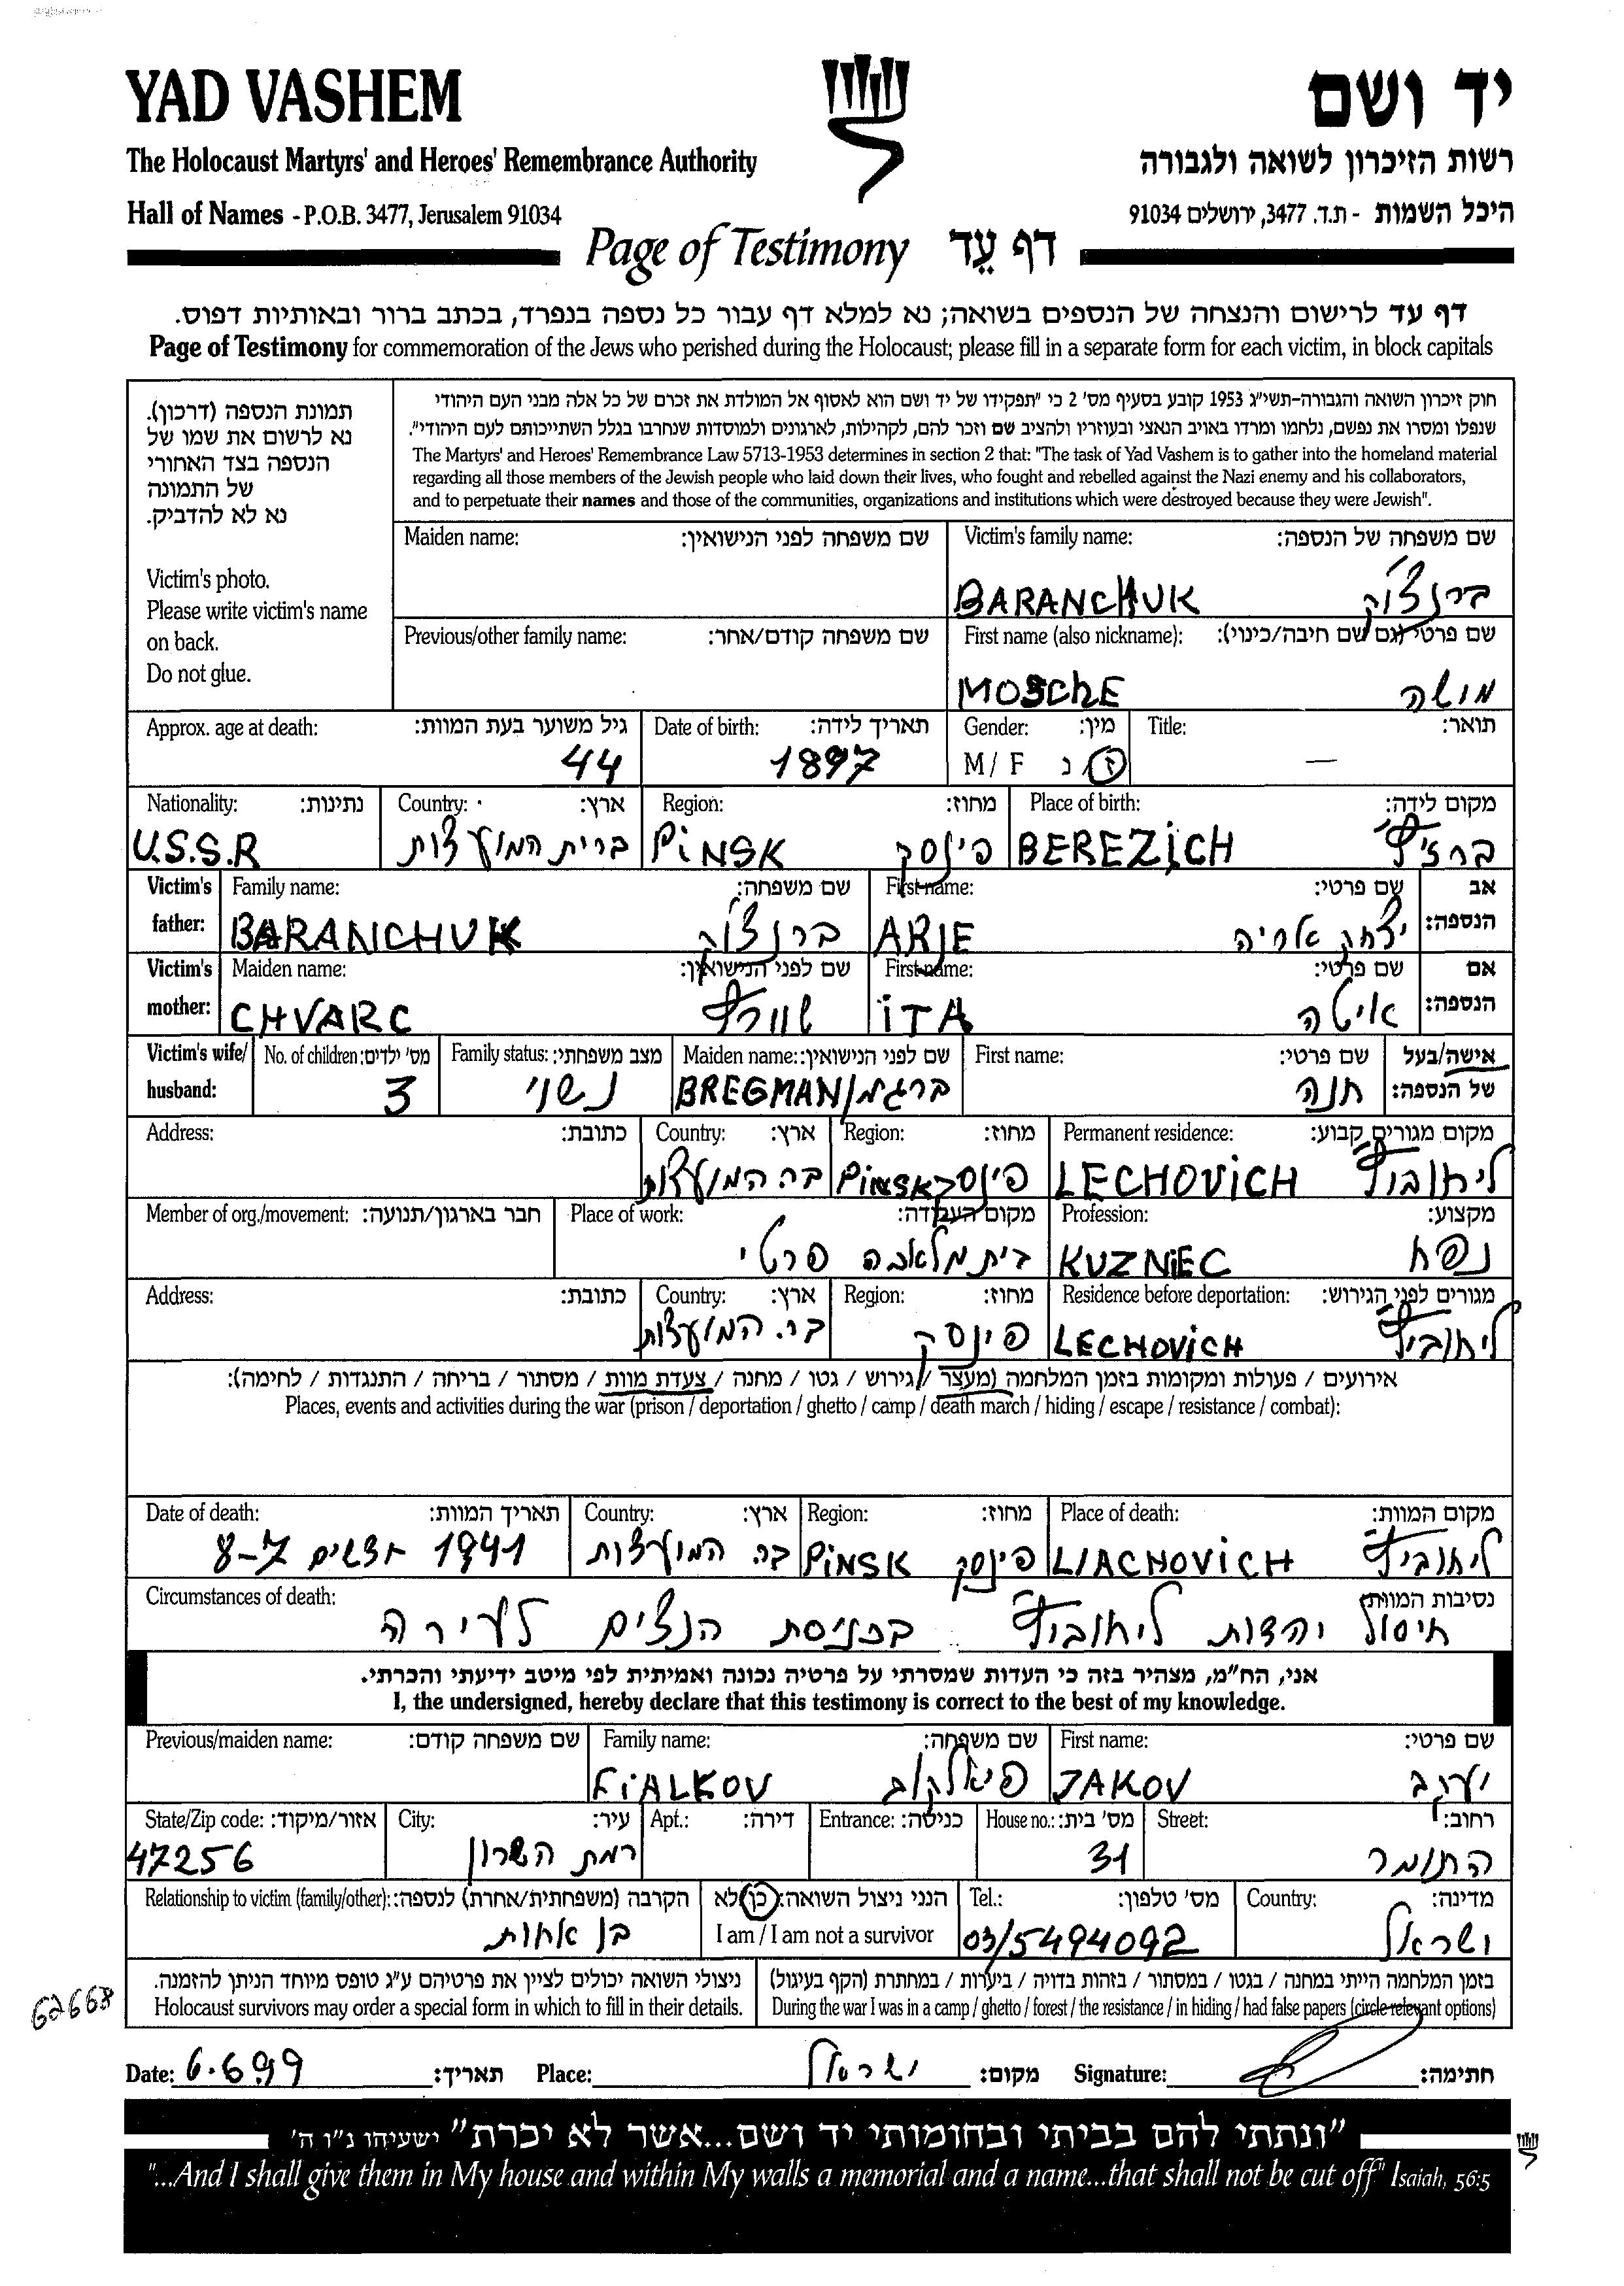 YAD VASHEM
יד ושם
The Holocaust Martyrs' and Heroes' Remembrance Authority
רשות הזיכרון לשואה ולגבורה
Hall of Names - P.O.B. 3477, Jerusalem 91034
היכל השמות - ת.ד. 3477, ירושלים 91034
Page of Testimony דף עֵד
דף עד לרישום והנצחה של הנספים בשואה; נא למלא דף עבור כל נספה בנפרד, בכתב ברור ובאותיות דפוס.
Page of Testimony for commemoration of the Jews who perished during the Holocaust; please fill in a separate form for each victim, in block capitals
תמונת הנספה (דרכון).
נא לרשום את שמו של
הנספה בצד האחורי
של התמונה
נא לא להדביק.
Victim's photo.
Please write victim's name
on back.
Do not glue.
חוק זיכרון השואה והגבורה-תשי"ג 1953 קובע בסעיף מס' 2 כי "תפקידו של יד ושם הוא לאסוף אל המולדת את זכרם של כל אלה מבני העם היהודי
שנפלו ומסרו את נפשם, נלחמו ומרדו באויב הנאצי ובעוזריו ולהציב שם וזכר להם, לקהילות, לארגונים ולמוסדות שנחרבו בגלל השתייכותם לעם היהודי".
The Martyrs' and Heroes' Remembrance Law 5713-1953 determines in section 2 that: "The task of Yad Vashem is to gather into the homeland material
regarding all those members of the Jewish people who laid down their lives, who fought and rebelled against the Nazi enemy and his collaborators,
and to perpetuate their names and those of the communities, organizations and institutions which were destroyed because they were Jewish".
Maiden name: שם משפחה לפני הנישואין:
Victim's family name: שם משפחה של הנספה:
BARANCHUK ברנצ'וק
Previous/other family name: שם משפחה קודם/אחר:
First name (also nickname): שם פרטי (גם שם חיבה/כינוי):
MOSChE משה
Approx. age at death: גיל משוער בעת המוות: Date of birth: תאריך לידה: Gender: מין: Title: תואר:
44 1897 M / F ז / נ —
Nationality: נתינות: Country: ארץ: Region: מחוז: Place of birth: מקום לידה:
U.S.S.R ברית המועצות PiNSK פינסק BEREZiCH ברזיץ'
Victim's father: Family name: שם משפחה: First name: שם פרטי: אב הנספה:
BARANCHUK ברנצ'וק ARJE יצחק אריה
Victim's mother: Maiden name: שם לפני הנישואין: First name: שם פרטי: אם הנספה:
CHVARC שוורץ iTA איטה
Victim's wife/ husband: No. of children: מס' ילדים: Family status: מצב משפחתי: Maiden name: שם לפני הנישואין: First name: שם פרטי: אישה/בעל של הנספה:
3 נשוי BREGMAN/ברגמן חנה
Address: כתובת: Country: ארץ: Region: מחוז: Permanent residence: מקום מגורים קבוע:
בר. המועצות PiNSK פינסק LECHOViCH ליחוביץ'
Member of org./movement: חבר בארגון/תנועה: Place of work: מקום העבודה: Profession: מקצוע:
בית מלאכה פרטי KUZNiEC נפח
Address: כתובת: Country: ארץ: Region: מחוז: Residence before deportation: מגורים לפני הגירוש:
בר. המועצות פינסק LECHOViCH ליחוביץ'
אירועים / פעולות ומקומות בזמן המלחמה (מעצר / גירוש / גטו / מחנה / צעדת מוות / מסתור / בריחה / התנגדות / לחימה):
Places, events and activities during the war (prison / deportation / ghetto / camp / death march / hiding / escape / resistance / combat):
Date of death: תאריך המוות: Country: ארץ: Region: מחוז: Place of death: מקום המוות:
1941 חדשים 7-8 בר. המועצות PiNSK פינסק LIACHOViCH ליחוביץ'
Circumstances of death: נסיבות המוות:
חיסול יהדות ליחוביץ' בכניסת הנצים לעירה
אני, הח"מ, מצהיר בזה כי העדות שמסרתי על פרטיה נכונה ואמיתית לפי מיטב ידיעתי והכרתי.
I, the undersigned, hereby declare that this testimony is correct to the best of my knowledge.
Previous/maiden name: שם משפחה קודם: Family name: שם משפחה: First name: שם פרטי:
FiALKOV פיאלקוב JAKOV יעקב
State/Zip code: אזור/מיקוד: City: עיר: Apt.: דירה: Entrance: כניסה: House no.: מס' בית: Street: רחוב:
47256 רמת השרון 31 התומר
Relationship to victim (family/other): הקרבה (משפחתית/אחרת) לנספה: הנני ניצול השואה: כן/לא Tel.: מס' טלפון: Country: מדינה:
בן אחות I am / I am not a survivor 03/5494092 ישראל
ניצולי השואה יכולים לציין את פרטיהם ע"ג טופס מיוחד הניתן להזמנה.
Holocaust survivors may order a special form in which to fill in their details.
בזמן המלחמה הייתי במחנה / בגטו / במסתור / בזהות בדויה / ביערות / במחתרת (הקף בעיגול)
During the war I was in a camp / ghetto / forest / the resistance / in hiding / had false papers (circle relevant options)
62668
Date: 6.6.99 תאריך: Place: ישראל מקום: Signature: חתימה:
"ונתתי להם בביתי ובחומותי יד ושם...אשר לא יכרת" ישעיהו נ"ו ה'
"...And I shall give them in My house and within My walls a memorial and a name...that shall not be cut off" Isaiah, 56:5